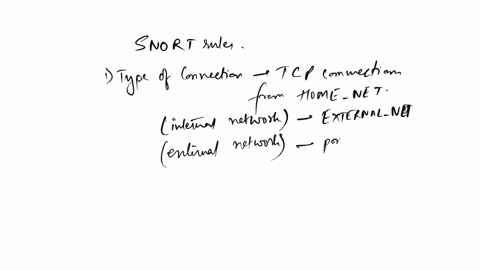 SNORT rules.
1) Type of Connection → TCP connections
from HOME_NET.
(internal network) → EXTERNAL_NET
(external network) — por